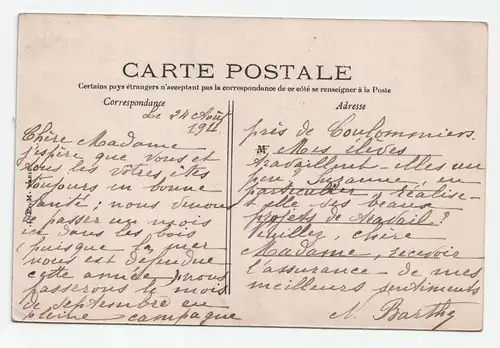 CARTE POSTALE
Certains pays étrangers n'acceptant pas la correspondance de ce côté se renseigner à la Poste
Correspondance
Le 24 Août
1911
Chère Madame
j'espère que vous et
tous les vôtres, êtes
toujours en bonne
santé ; nous venons
de passer un mois
ici dans les bois
(puisque la mer
nous est défendue
cette année) nous
passerons le mois
de septembre en
pleine campagne
Adresse
près de Coulommiers.
M
Mes élèves
travaillent-elles un
peu, Suzanne, en
particulier, réalise-
t-elle des beaux
projets de travail ?
Veuillez, chère
Madame, recevoir
l'assurance de mes
meilleurs sentiments
N. Barthy